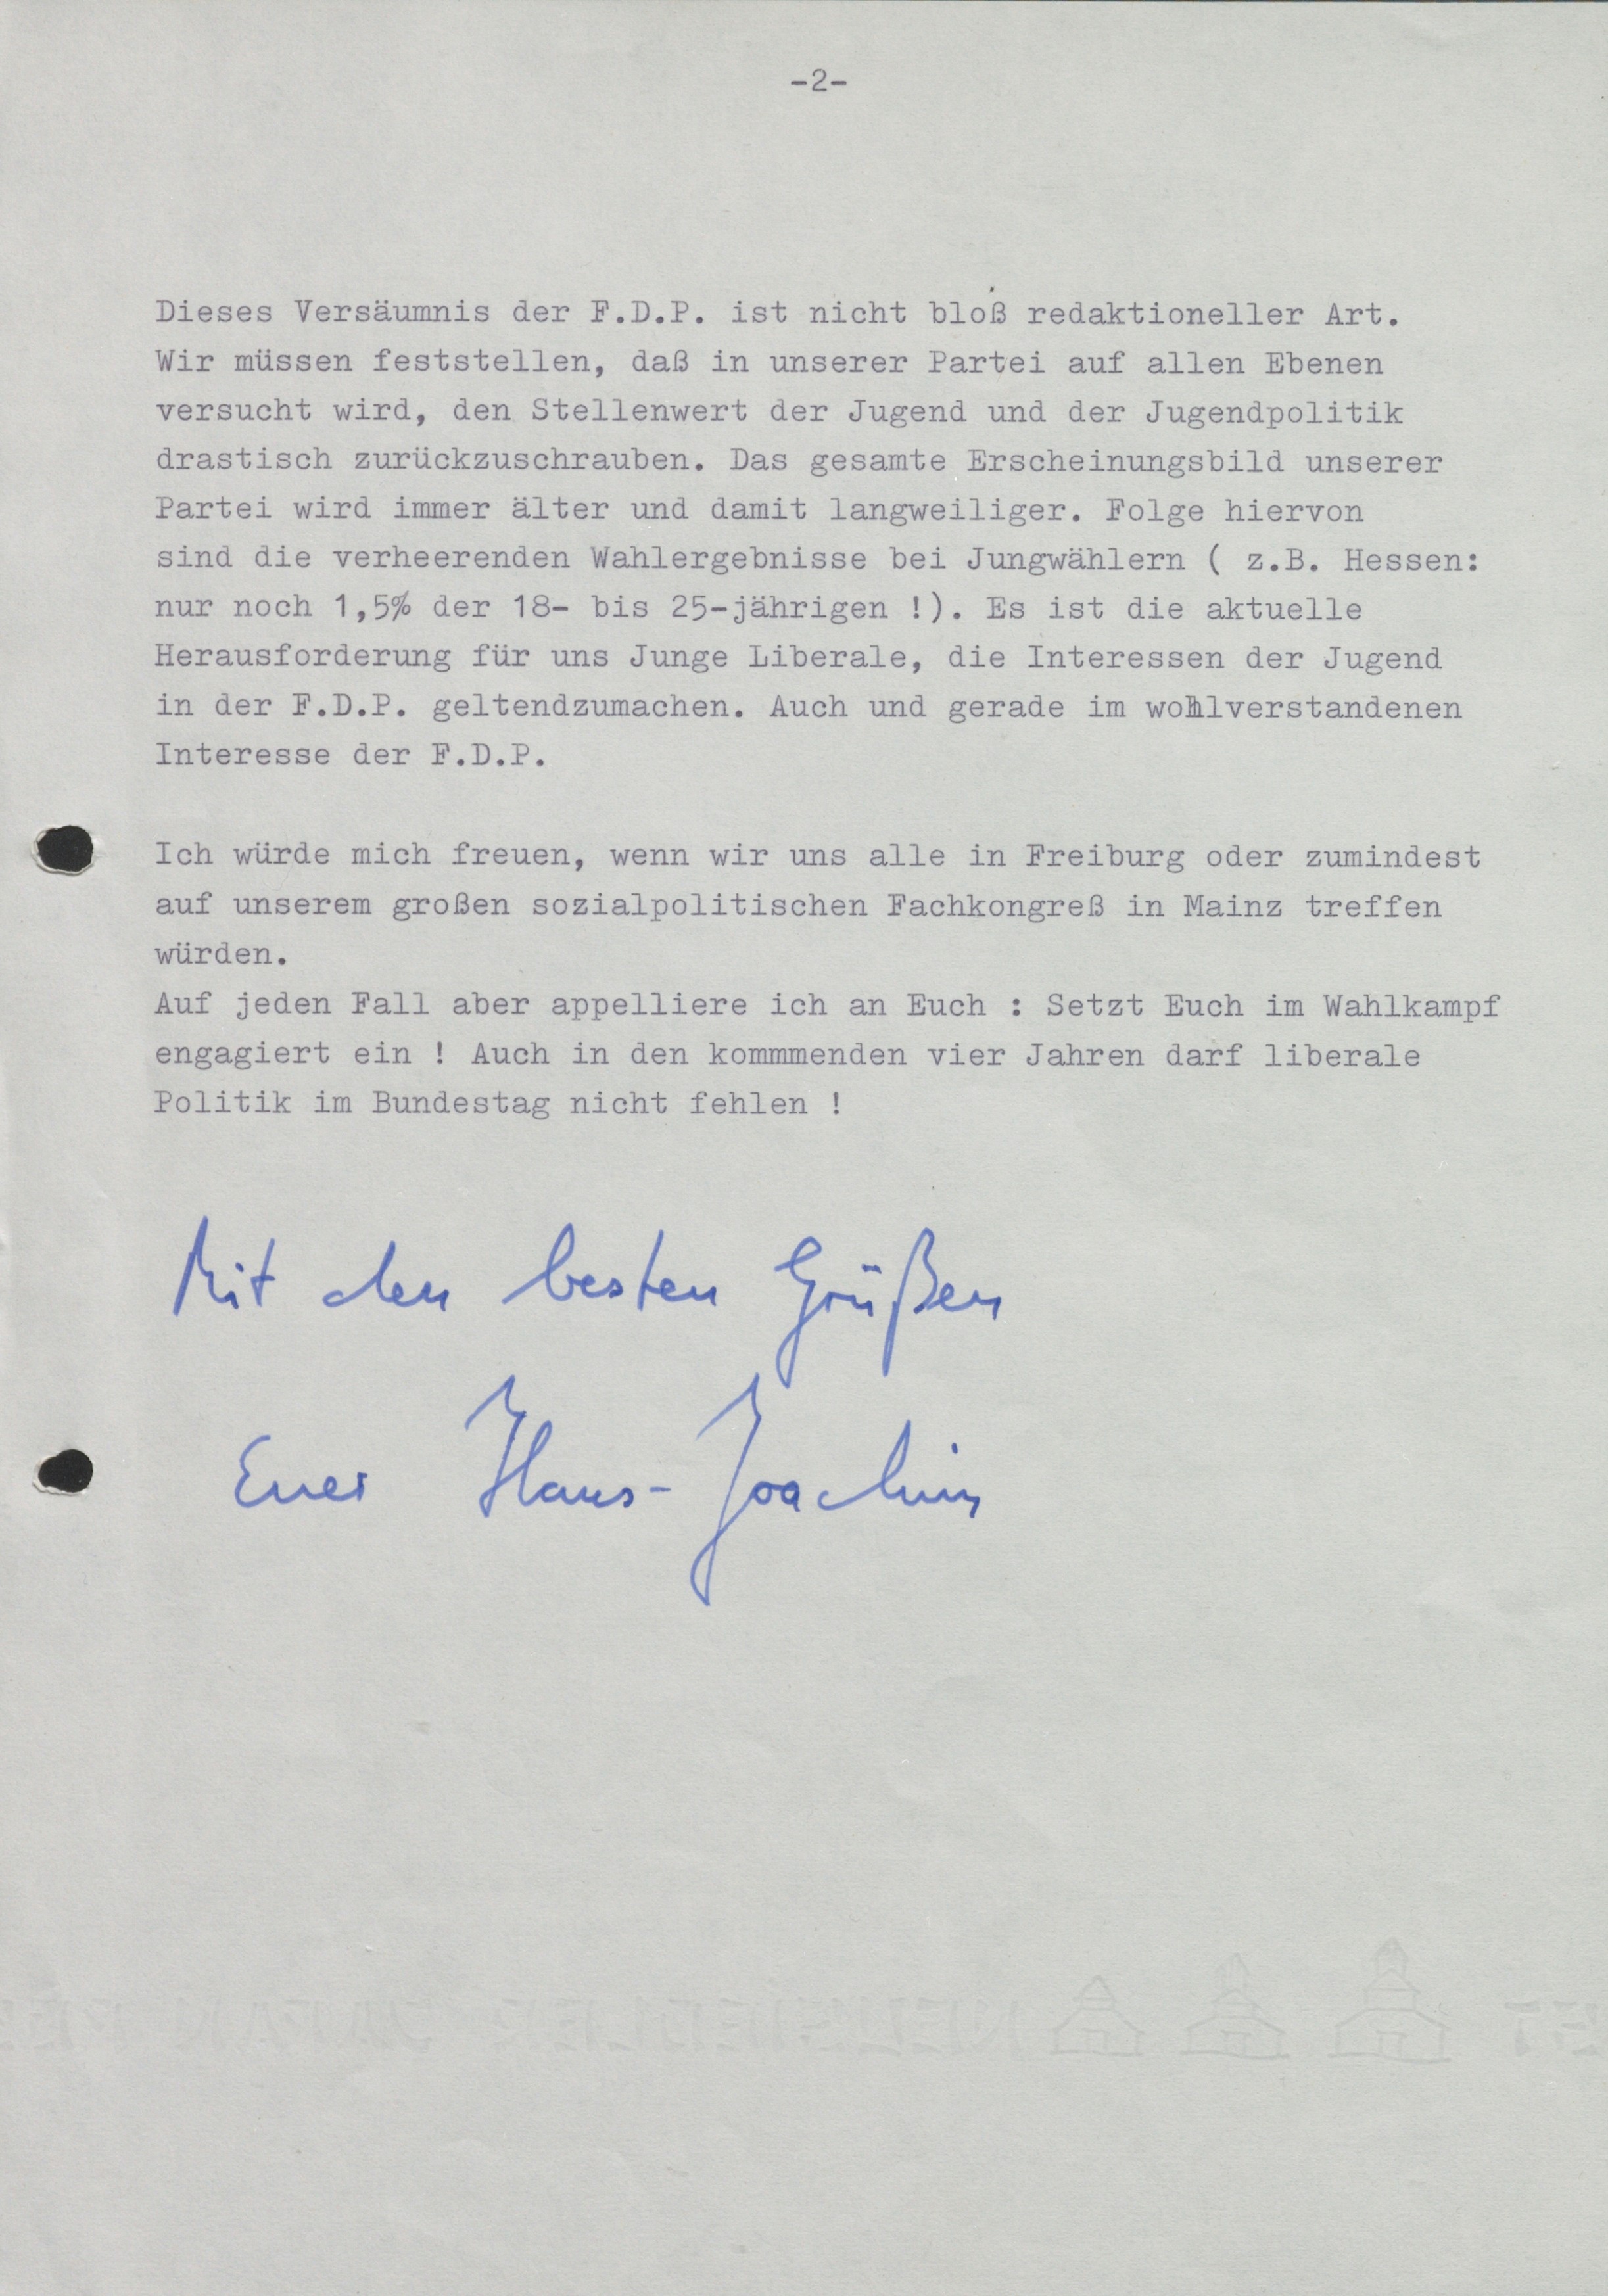 -2-
Dieses Versäumnis der F.D.P. ist nicht bloß redaktioneller Art.
Wir müssen feststellen, daß in unserer Partei auf allen Ebenen
versucht wird, den Stellenwert der Jugend und der Jugendpolitik
drastisch zurückzuschrauben. Das gesamte Erscheinungsbild unserer
Partei wird immer älter und damit langweiliger. Folge hiervon
sind die verheerenden Wahlergebnisse bei Jungwählern ( z.B. Hessen:
nur noch 1,5% der 18- bis 25-jährigen !). Es ist die aktuelle
Herausforderung für uns Junge Liberale, die Interessen der Jugend
in der F.D.P. geltendzumachen. Auch und gerade im wohlverstandenen
Interesse der F.D.P.
Ich würde mich freuen, wenn wir uns alle in Freiburg oder zumindest
auf unserem großen sozialpolitischen Fachkongreß in Mainz treffen
würden.
Auf jeden Fall aber appelliere ich an Euch : Setzt Euch im Wahlkampf
engagiert ein ! Auch in den kommmenden vier Jahren darf liberale
Politik im Bundestag nicht fehlen !
Mit den besten Grüßen
Euer Hans-Joachim